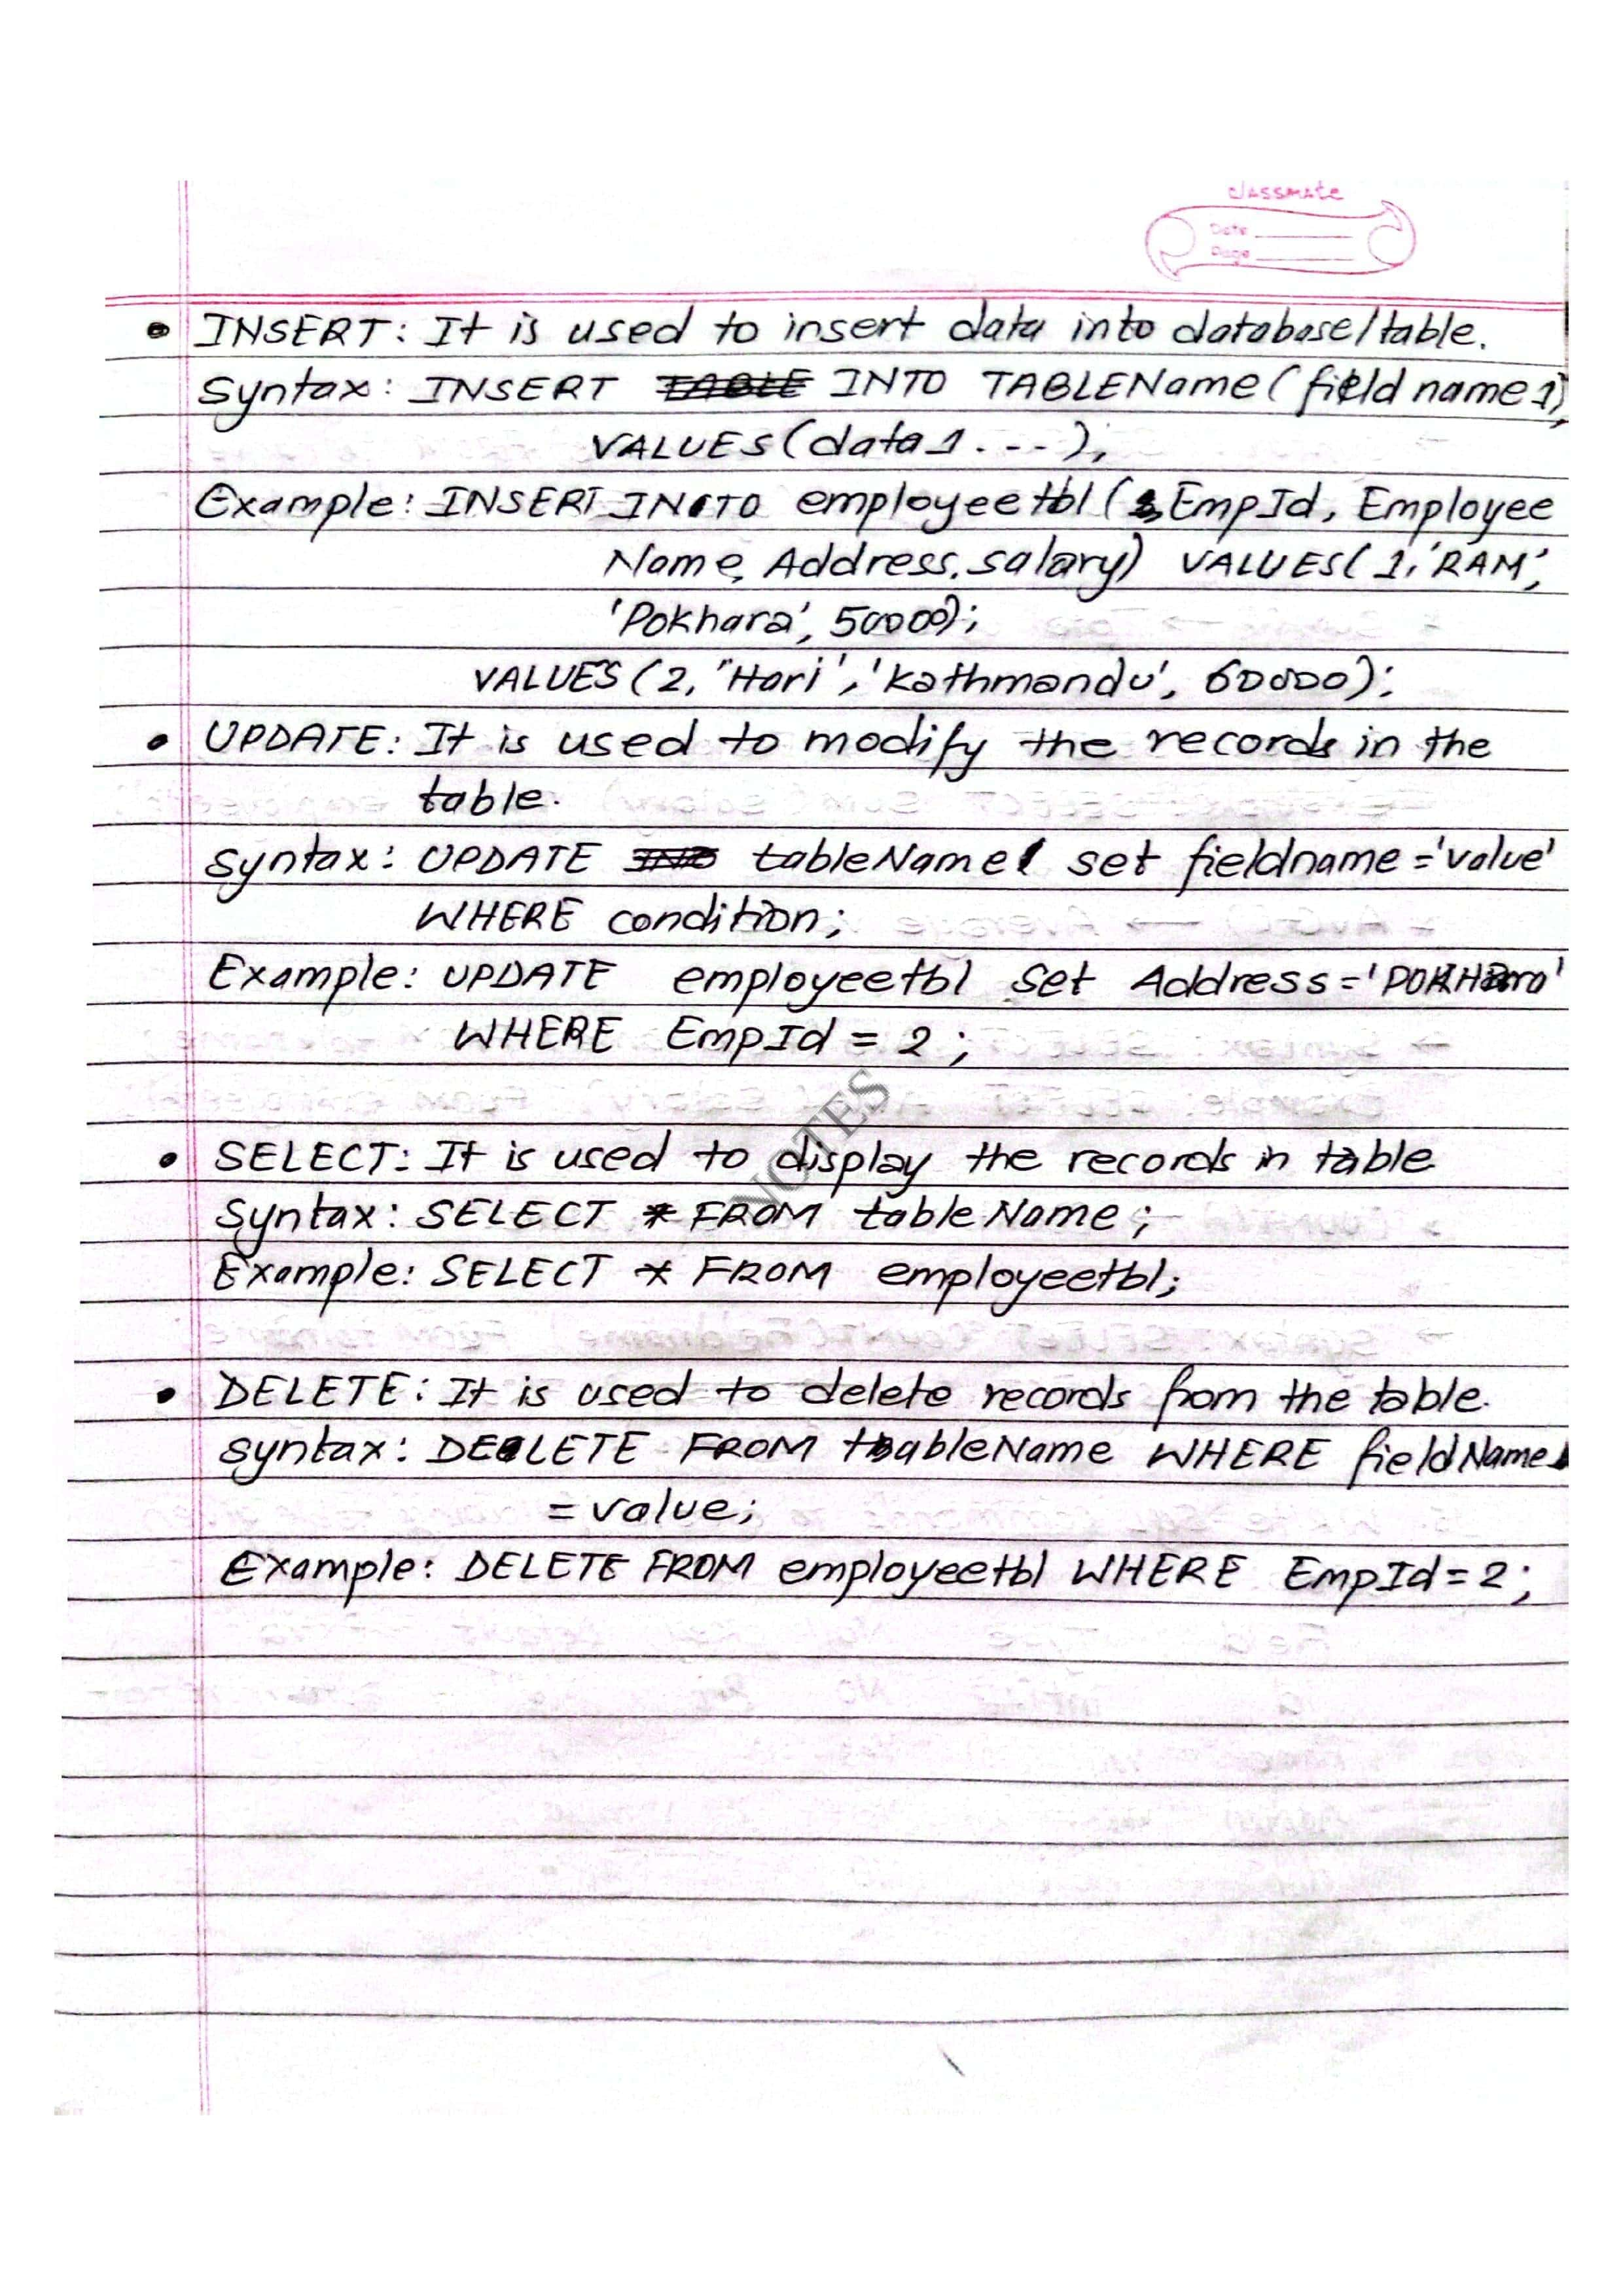 classmate
Date
Page
• INSERT: It is used to insert data into database/table.
Syntax: INSERT INTO TABLEName (field name 1),
VALUES (data1 . - - ),
Example: INSERT INTO employeetbl ( EmpId, Employee
Name, Address, salary) VALUES( 1, 'RAM',
'Pokhara', 50000);
VALUES (2, "Hari', 'Kathmandu', 60000);
• UPDATE: It is used to modify the records in the
table.
Syntax: UPDATE tableName set fieldname = 'value'
WHERE condition;
Example: UPDATE employeetbl set Address = 'POKHara'
WHERE EmpId = 2 ;
NOTES
• SELECT: It is used to display the records in table
Syntax: SELECT * FROM tableName;
Example: SELECT * FROM employeetbl;
• DELETE: It is used to delete records from the table.
syntax: DELETE FROM tableName WHERE fieldName
= value;
Example: DELETE FROM employeetbl WHERE EmpId = 2 ;